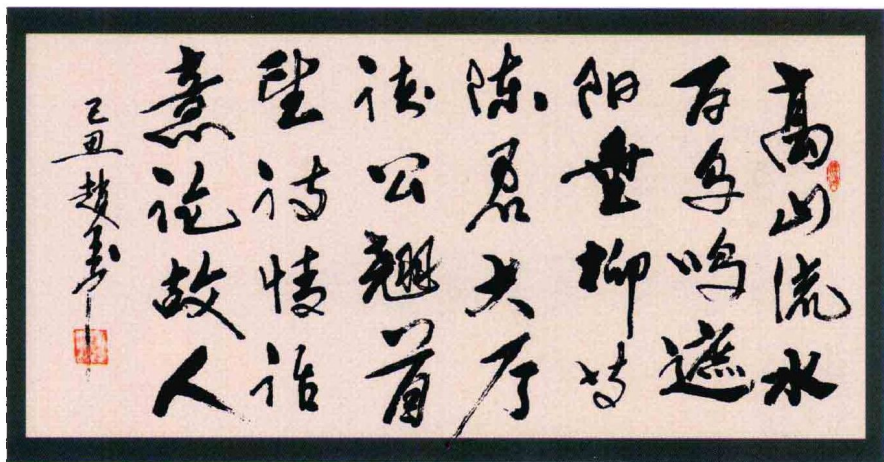 高山流水
百鸟鸣遮
阳垂柳等
陈君大厅
公翘首
望诗情话
意论故人
己丑赵